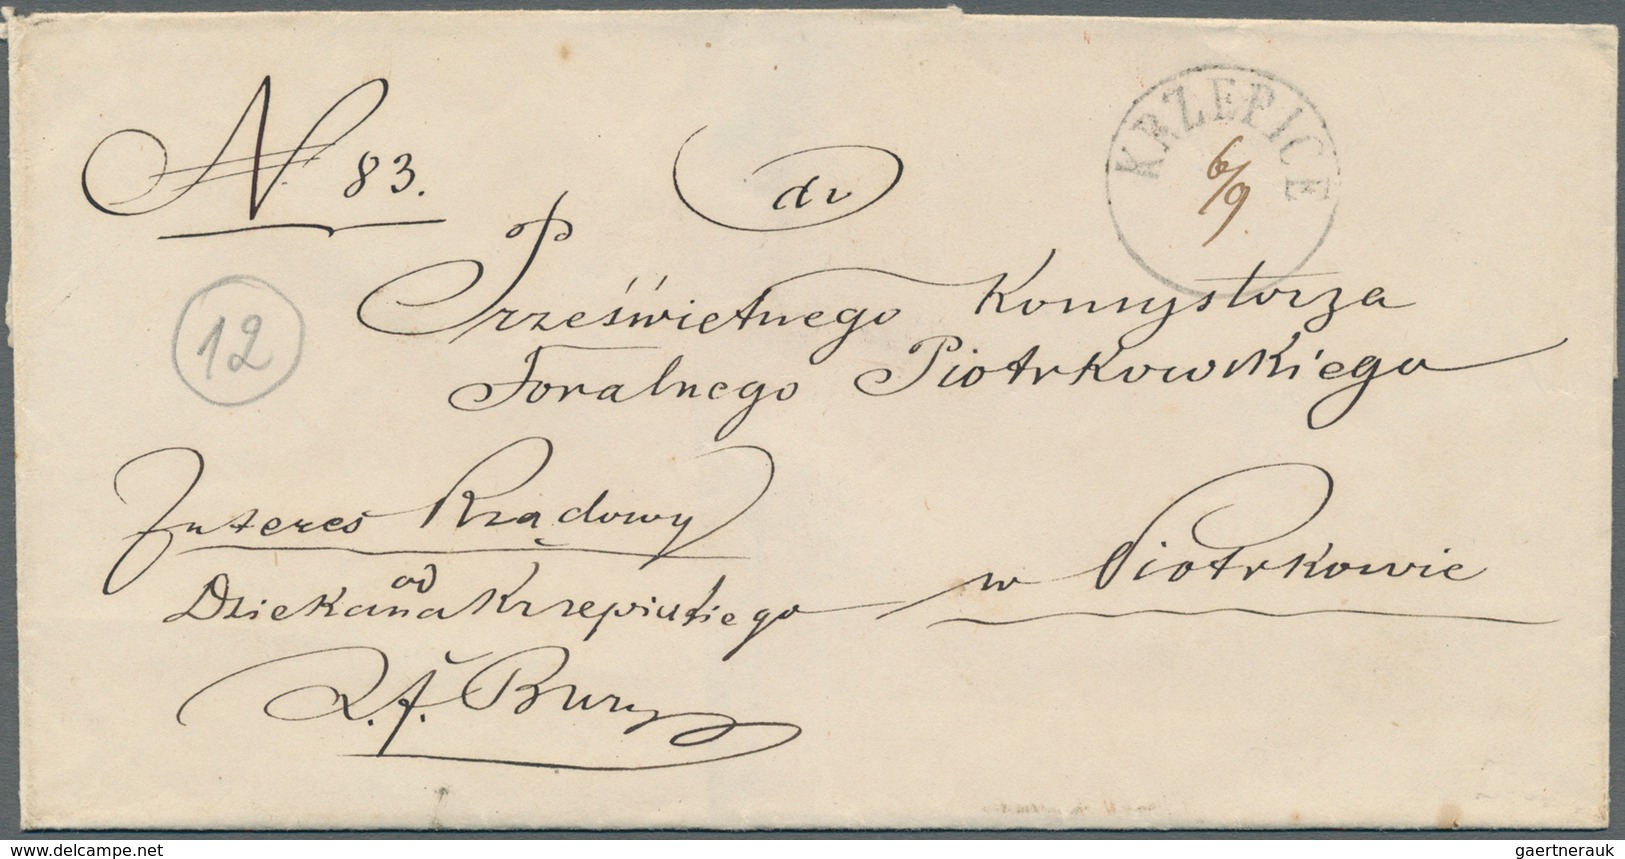 N 83.
do
KRZEPICE
6/9
Prześwietnego Konsystorza
Foralnego Piotrkowskiego
12
Interes Rządowy
w Piotrkowie
od
Dziekana Krzepickiego
X. A. Bury
delcampe.net
gaertnerauk